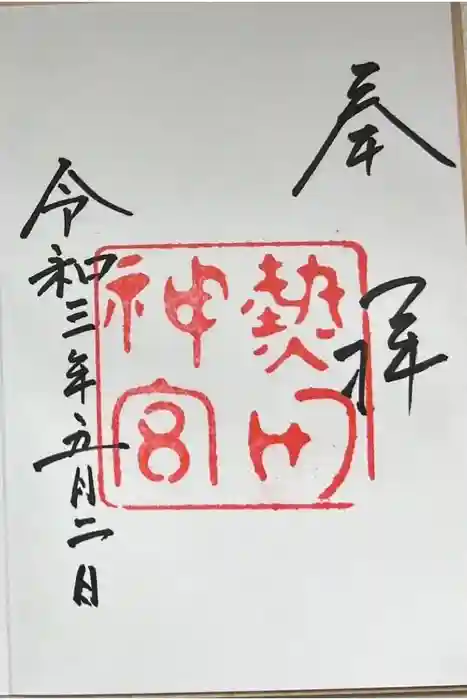 奉拝
熱田
神宮
令和三年五月二日